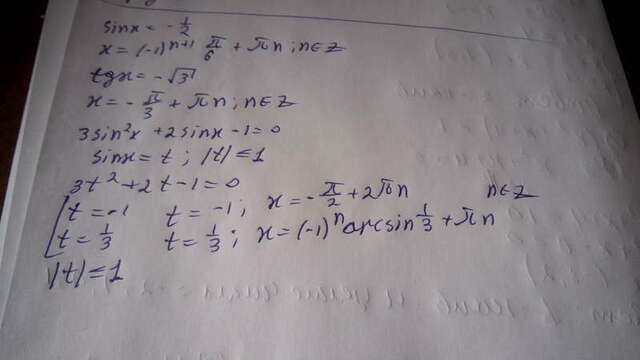 sinx = -1/2
x = (-1)^n+1 π/6 + πn ; n∈Z
tgx = -√3
x = -π/3 + πn ; n∈Z
3sin²x + 2sinx - 1 = 0
sinx = t ; |t| ≤ 1
3t² + 2t - 1 = 0
[t = -1 t = -1 ; x = -π/2 + 2πn n∈Z
t = 1/3 t = 1/3 ; x = (-1)^n arcsin 1/3 + πn
|t| ≤ 1